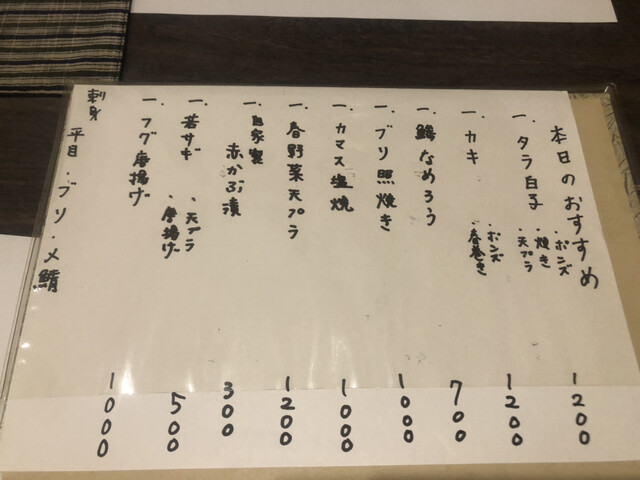 本日のおすすめ
一.タラ白子
・ポンズ
・焼き
・天プラ
1200
一.カキ
・ポンズ
・春巻き
1200
一.鯵なめろう
700
一.ブリ照焼き
1000
一.カマス塩焼
1000
一.春野菜天プラ
1200
一.自家製
赤かぶ漬
300
一.若サギ
・天プラ
・唐揚げ
500
一.フグ唐揚げ
1000
刺身
平目.ブリ.〆鯖